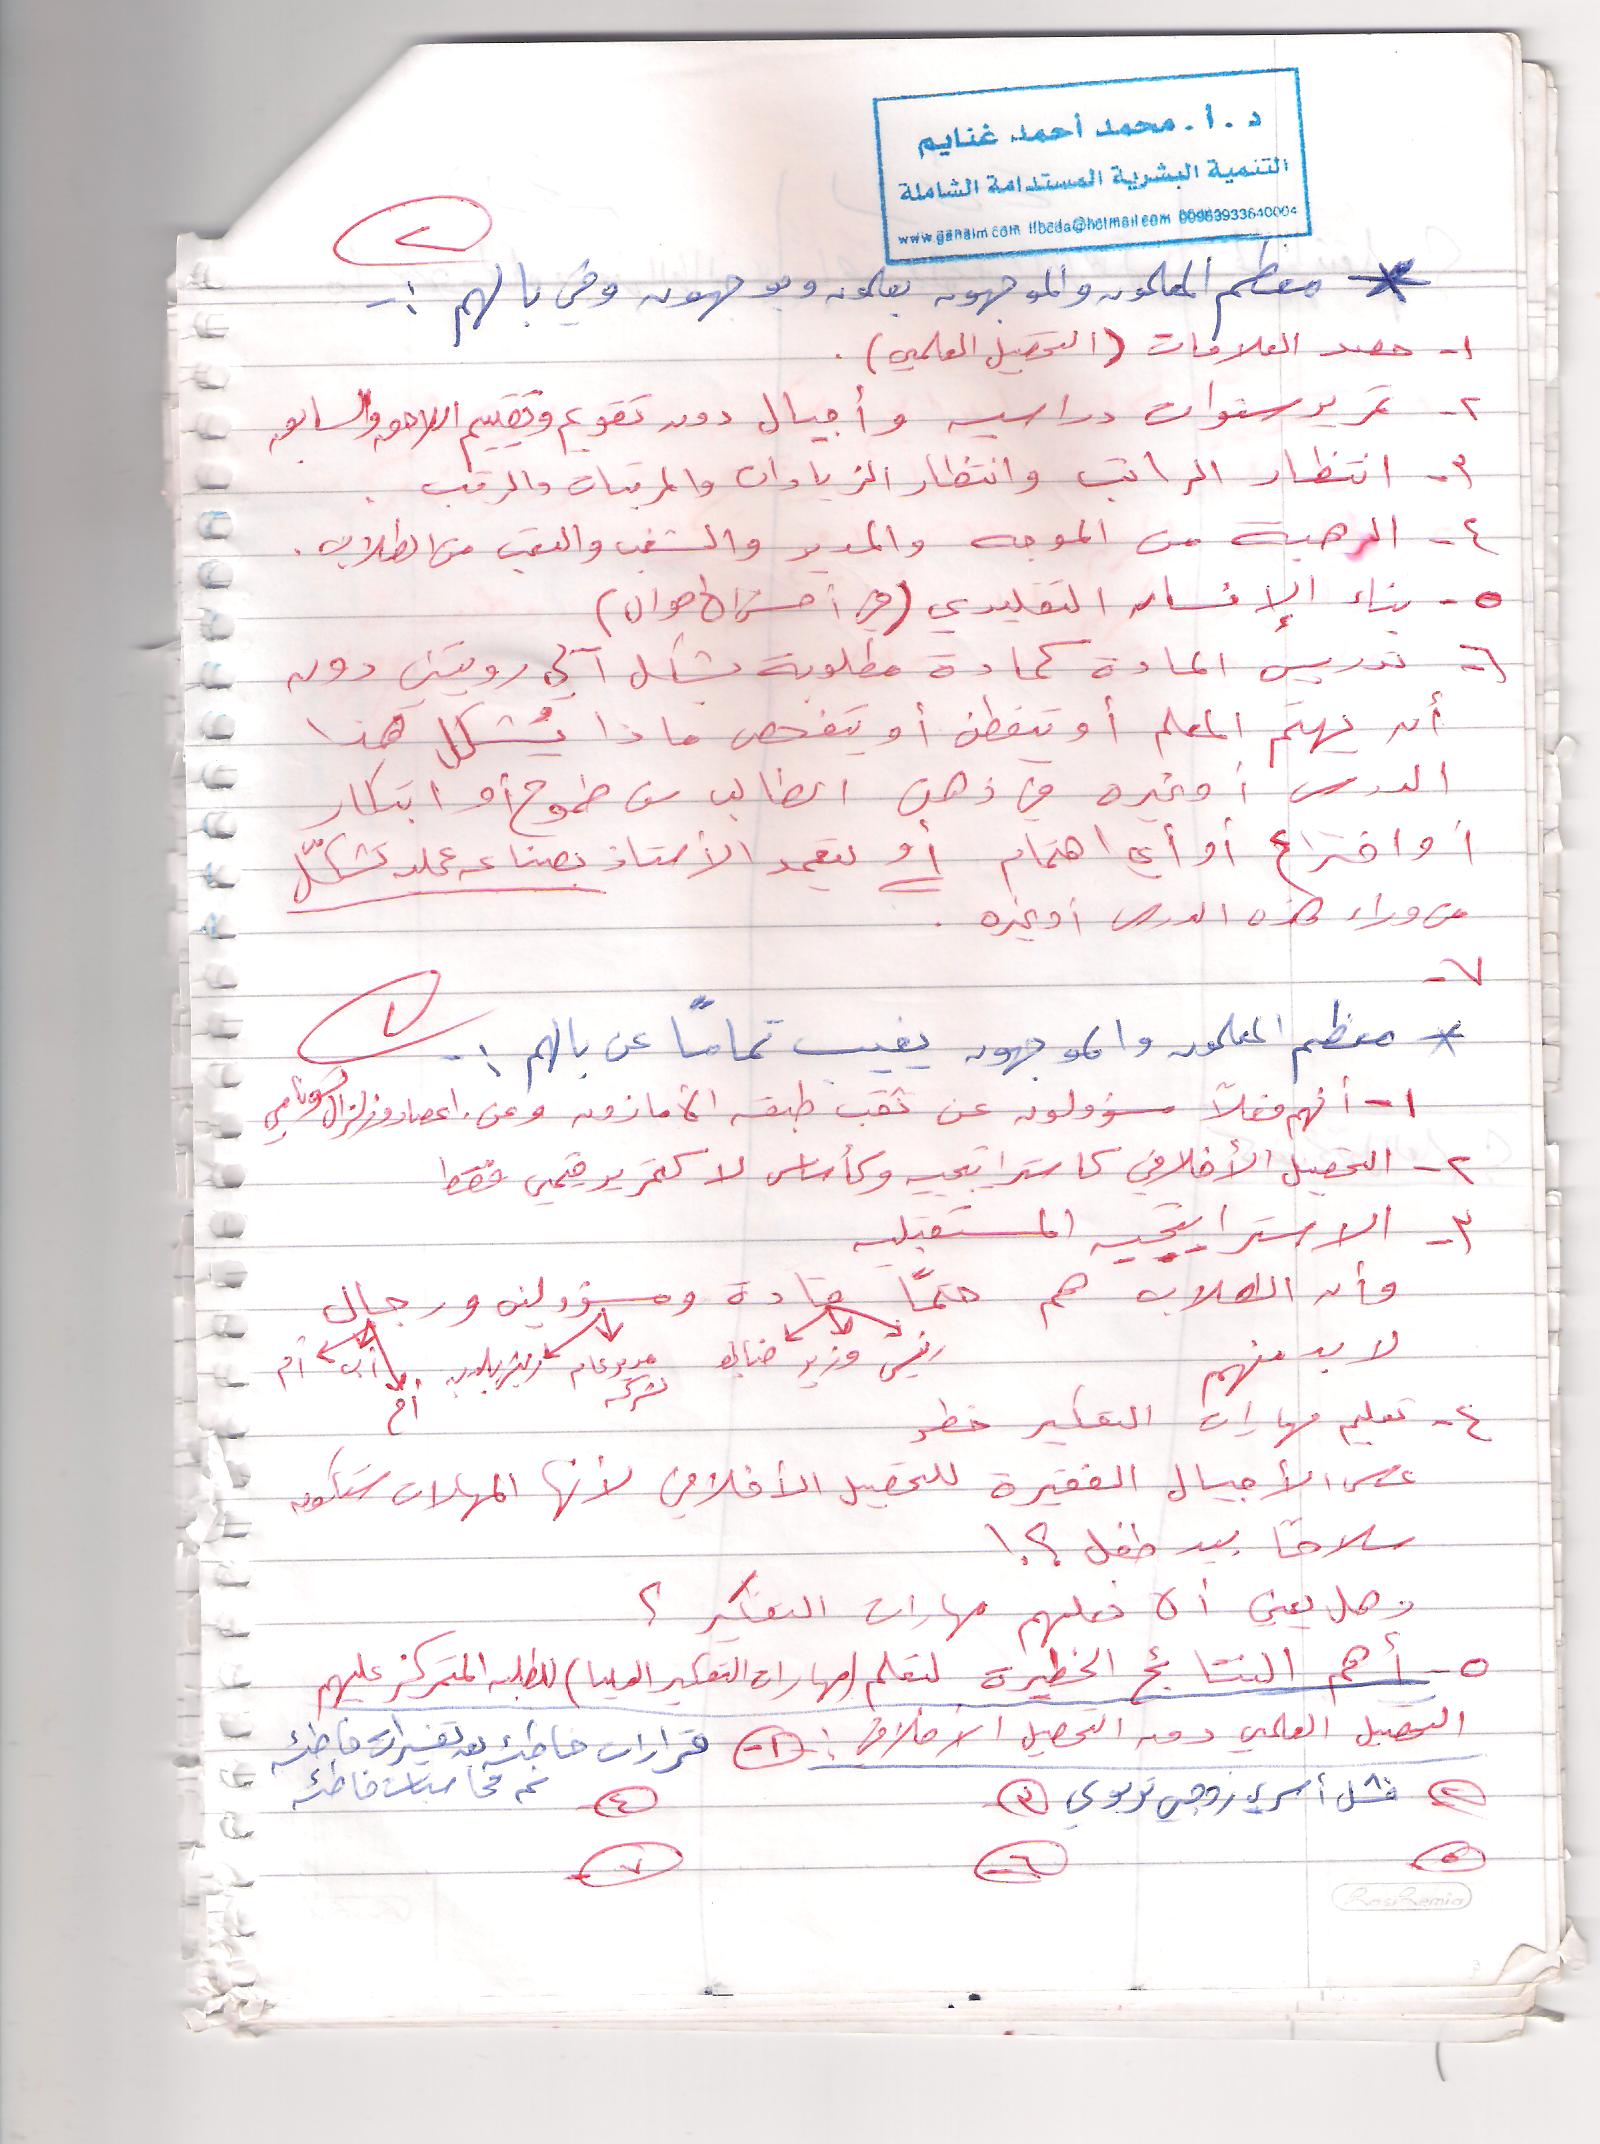 د.أ. محمد أحمد غنايم
التنمية البشرية المستدامة الشاملة
www.ganaim.com ifbcda@hotmail.com 00963933640004
٢
* معظم المعلمون والموجهون يعلمون ويوجهون وفي بالهم :-
١- حصد العلامات (التحصيل العلمي).
٢- تمرير سنوات دراسيه وأجيال دون تقويم وتقييم اللاحق والسابق
٣- انتظار الراتب وانتظار الزيادات والمرتبات والرتب.
٤- الرهبة من الموجه والمدير والشغب والتعب من الطلاب.
٥- بناء الإنسان التقليدي (في أحسن الأحوال)
٦- تدريس المادة كمادة مطلوبة بشكل آلي روتيني دون
أن يهتم المعلم أو يتفطن أو يتفحص ماذا يُشكل هذا
الدرس أو غيره في ذهن الطالب من طموح أو ابتكار
أو اختراع أو أي اهتمام أو يتعمد الأستاذ بصناعه تشكّل
من وراء هذه الدرس أو غيره.
٧-
* معظم المعلمون والموجهون يغيب تماماً عن بالهم :-
١- أنهم فعلاً مسؤولون عن ثقب طبقه الأمازون وعن اعصار وزلزال تسونامي
٢- التحصيل الأخلاقي كاستراتيجيه وكأساس لا كتمرير قيمي فقط
٣- الاستراتيجيه المستقبليه
وأن الطلاب هم حتمًا قادة ومسؤولين ورجال
لا بد منهم
رئيس وزير ضابط
مدير عام شركه
أب أم
أخ
٤- تعليم مهارات التفكير خطر
على الأجيال الفقيرة للتحصيل الأخلاقي لأنها المهارات ستكون
سلاحًا بيد طفل ؟!
وهل يعني ألا نعلمهم مهارات التفكير ؟
٥- أهم النتائج الخطيرة لتعلم (مهارات التفكير العليا) للطلبه المتمركز عليهم
التحصيل العلمي دون التحصيل الأخلاقي :- ١- قرارات خاطئه بعد تفسيرات خاطئه
ثم محاسبات خاطئه
٢- فشل أسري زوجي تربوي ٣- ٤-
٥- ٦- ٧-